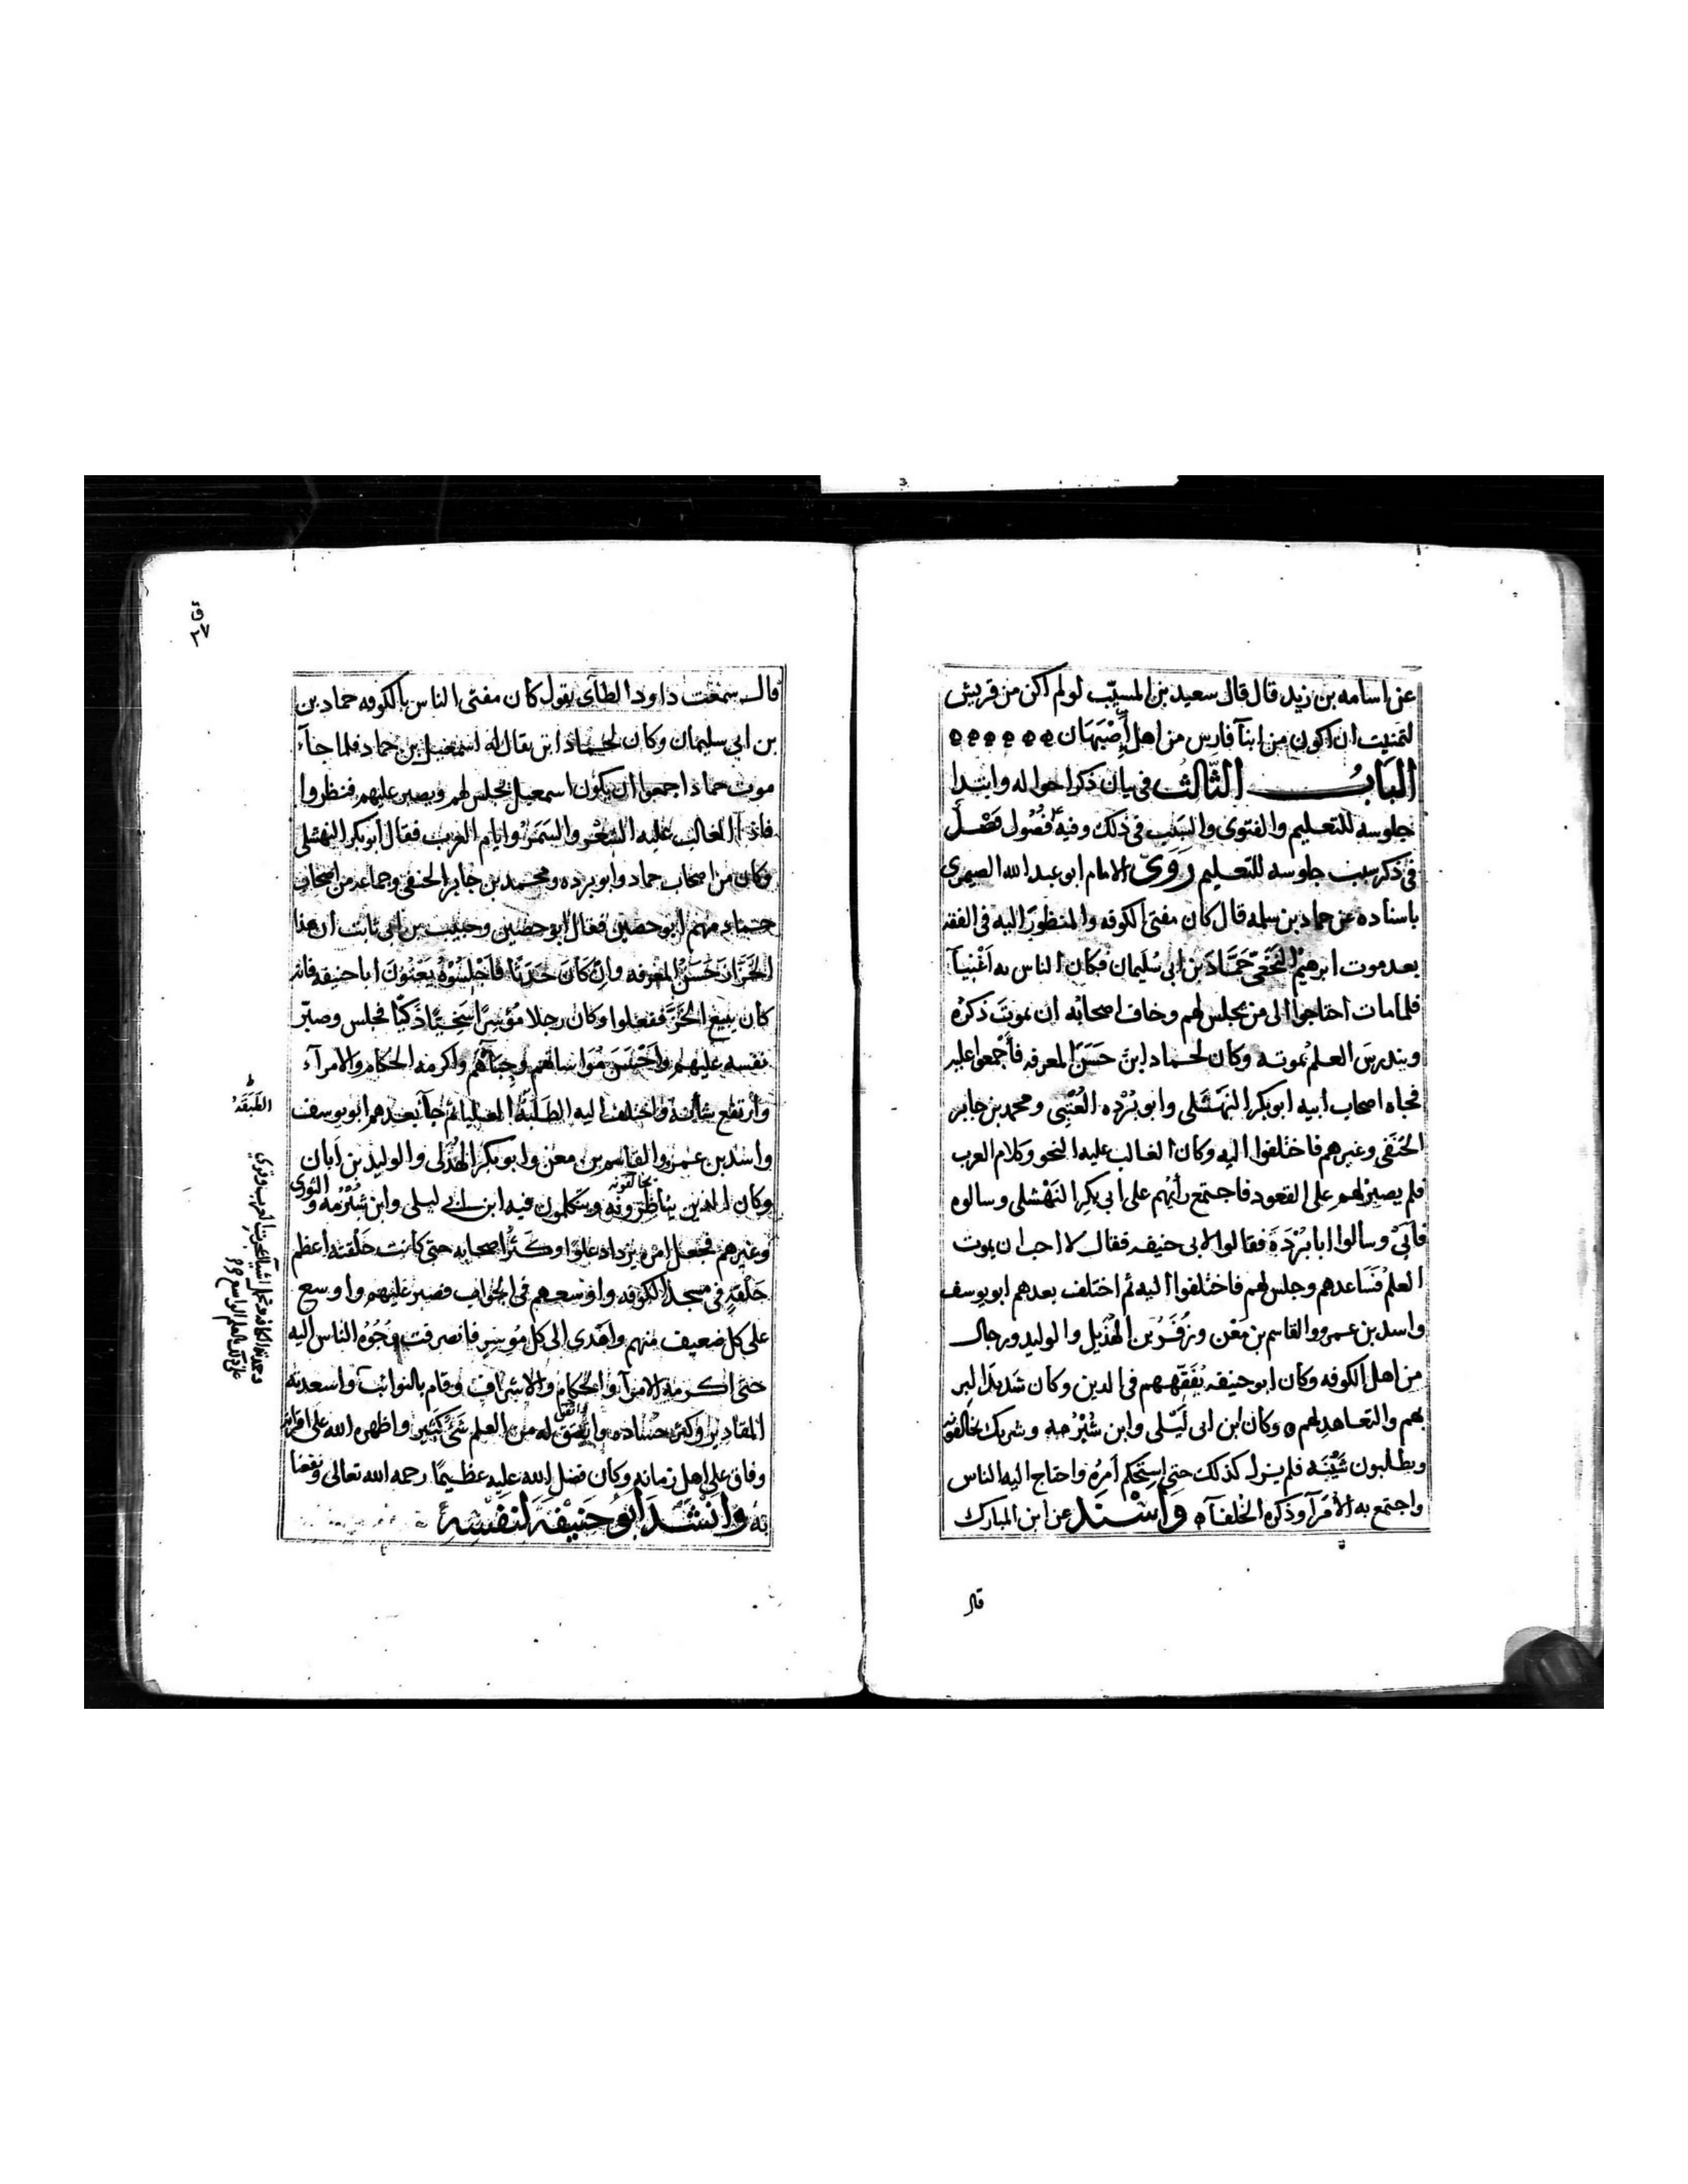 عن اسامه بن زيد قال قال سعيد بن المسيّب لو لم اكن من قريش
لتمنيت ان اكون من ابنآ فارس من اهل اَصْبَهَان ه ه ه ه ه ه
البَابُ الثّالث في بيان ذكر احواله وابتدا
جلوسه للتعليم والفتوى والسَبب في ذلك وفيه فُصُول فصْل
في ذكر سبب جلوسه للتعليم رَوَىَ الامام ابو عبد الله الصيمري
باسناده عن حماد بن سلمه قال كان مفتى الكوفه والمنظورَ اليه في الفقه
بعد موت ابرهيم النَّخَعي حَمَّادَ بن ابى سُلَيمان فكان الناس به اَغْنِيآ
فلما مات احتاجوا الى من يجلس لهم وخاف اصحابُه ان يموت ذكرُه
ويندرس العلمُ بموته وكان لحماد ابنٌ حَسَنُ المعرفه فأجمعوا عليه
فجاه اصحاب ابيه ابو بكر النَهشَلى وابو بُرْده العُتْبِي ومحمد بن جابر
الحَنَفى وغيرهم فاختلفوا اليه وكان الغالب عليه النحو وكلام العرب
فلم يصبر لهم على القعود فاجتمع رأيُهم على ابى بكر النَهْشلى وسالوه
فأَبىَ وسالوا ابا بُرْدَةَ فقالوا لابى حنيفه فقال لا احب ان يموت
العلمُ فسَاعدهم وجلس لهم فاختلفوا اليه ثم اختلف بعدهم ابو يوسف
واسد بن عمرو والقاسم بن مَعْن وزُفَرُ بن الهُذَيل والوليد ورجال
من اهل الكوفه وكان ابو حنيفه يُفَقّهُهم في الدين وكان شديدَ البِر
بهم والتعاهد لهم ه وكان ابن ابى لَيْلى وابن شُبْرُمه وشريك يخالفونه
ويطلبون شَيْنَه فلم يزل كذلك حتى استَحكم أمرُه واحتاج اليه الناس
واجتمع به الأمَرآ وذكره الخُلفآ ه وأسْنَد عن ابن المبارك
قال
ق
٣٧
قال سمعت داود الطآى يقول كان مفتى الناس بالكوفه حماد بن
بن ابى سليمان وكان لحماد ابن يقال له اسمعيل بن حماد فلما جآء
موت حماد اجمعوا ان يكون اسمعيل يجلس لهم ويصبر عليهم فنظروا
فاذا الغالب عليه الشعْر والسَمَرُ وايام العرب فقال ابو بكر النهشلى
وكان من اصحاب حماد وابو برده ومحمد بن جابر الحنفى وجماعه من اصحاب
حماد منهم ابو حصين فقال ابو حصين وحبيب بن ابى ثابت ان هذا
الخَزَّازَ حَسَنُ المعرفه وإنْ كان حَدَثًا فَأجْلِسُوْهُ يَعْنُوْنَ ابا حنيفه فانه
كان يبيع الخَزَّ ففعلوا وكان رجلا مُوْسِرًا سَخِيًّا ذَكيًّا فجلس وصبّر
نفسه عليهم وأحْسَنَ مُواساتهم وحِبَآهُم واكرمه الحُكام والامرآء
وارتفع شأنه واختلف اليه الطَلَبَةُ العُليا ثم جآ بعدهم ابو يوسف
واسد بن عمرو والقاسم بن معن وابو بكر الهُذَلى والوليد بن اَبان
وكان الذين يناظرونه ويتكلمون فيه ابن ابى ليلى وابن شُبْرُمه و الثورى
يخالفونه
وغيرهم فجعل امره يزداد علوًّا وكَثُر اصحابه حتى كانت حَلْقته اعظم
حَلْقةٍ في مسجد الكوفه واوْسعهم فى الجواب فصبر عليهم واوسع
على كل ضعيف منهم واهْدى الى كل مُوسِرٍ فانصرفت وُجُوْهُ الناس اليه
حتى اكرمه الامرآ والحكام والاشراف وقام بالنوائب واسعدته
المقادير وكثر حُسّاده واتفق له من العلم شَئٌ كثير واظهره الله على اقرانه
وفاق على اهل زمانه وكان فضل الله عليه عظيمًا رحمه الله تعالى ونفعنا
به وَاَنْشَدَ اَبُوْ حَنِيْفَةَ لِنَفْسِهِ
الطَبَقَةُ